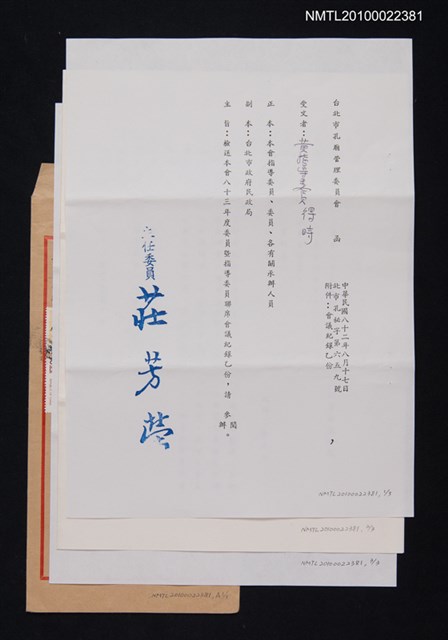 NMTL20100022381
台北市孔廟管理委員會　函
中華民國八十二年八月十七日
北市孔秘字第六五九號
附件：會議紀錄乙份
受文者：黃指導委員得時
正本：本會指導委員、委員、各有關承辦人員
副本：台北市政府民政局
主旨：檢送本會八十三年度委員暨指導委員聯席會議紀錄乙份，請　參閱
辦。
主任委員　莊芳榮
NMTL20100022381, 1/3
NMTL20100022381, 2/3
NMTL20100022381, 3/3